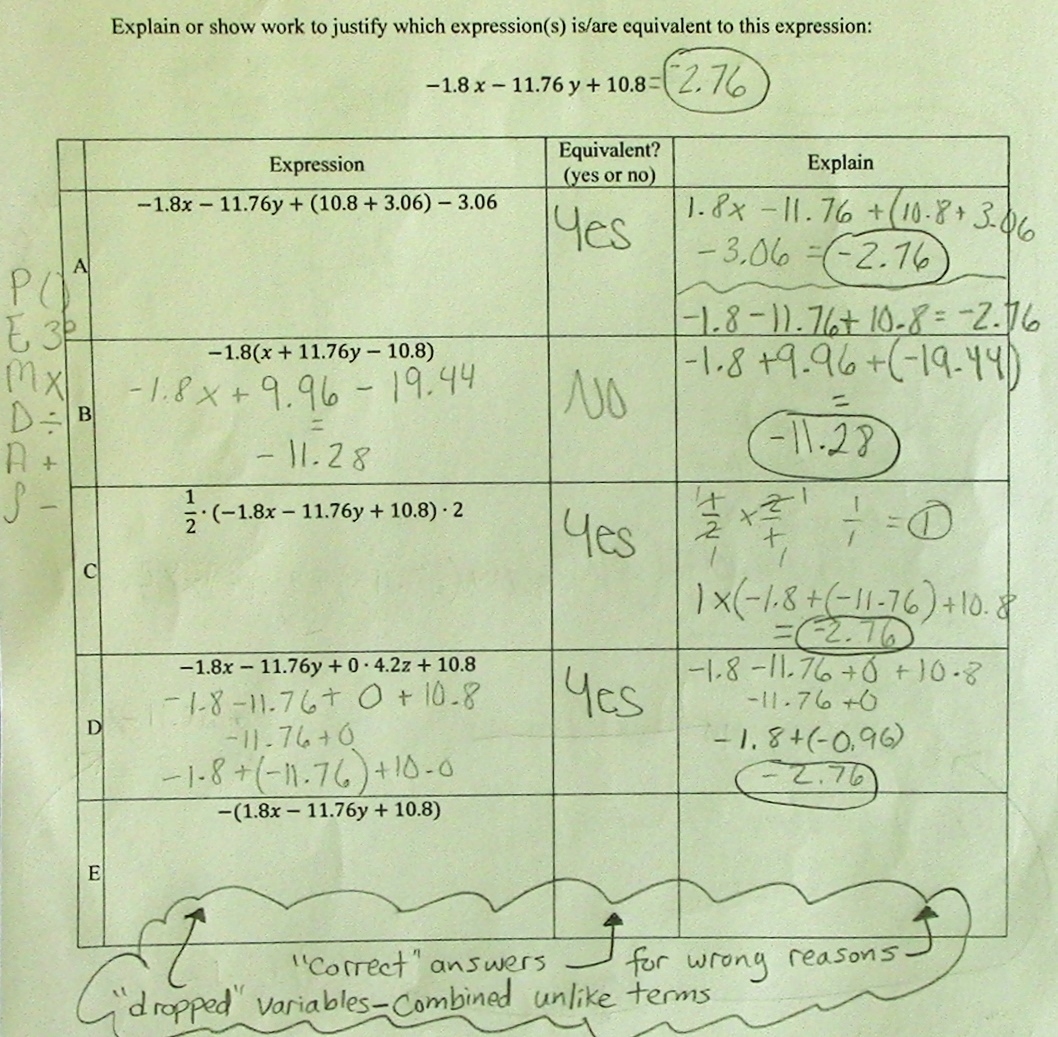 Explain or show work to justify which expression(s) is/are equivalent to this expression:
−1.8 x − 11.76 y + 10.8 = -2.76
Expression
Equivalent?
(yes or no)
Explain
P ()
E 3²
M x
D ÷
A +
S -
A
−1.8x − 11.76y + (10.8 + 3.06) − 3.06
Yes
1.8x - 11.76 + (10.8 + 3.06
- 3.06 = -2.76
-1.8 - 11.76 + 10.8 = -2.76
B
−1.8(x + 11.76y − 10.8)
-1.8x + 9.96 - 19.44
=
- 11.28
No
-1.8 + 9.96 + (-19.44)
=
-11.28
C
1/2 · (−1.8x − 11.76y + 10.8) · 2
Yes
1 1/2 1 x 2/1 1 1/1 = 1
1 x (-1.8 + (-11.76) + 10.8
= -2.76
D
−1.8x − 11.76y + 0 · 4.2z + 10.8
-1.8 - 11.76 + 0 + 10.8
-11.76 + 0
-1.8 + (-11.76) + 10.0
Yes
-1.8 - 11.76 + 0 + 10.8
-11.76 + 0
-1.8 + (-0.96)
-2.76
E
−(1.8x − 11.76y + 10.8)
"Correct" answers for wrong reasons
"dropped" variables - Combined unlike terms